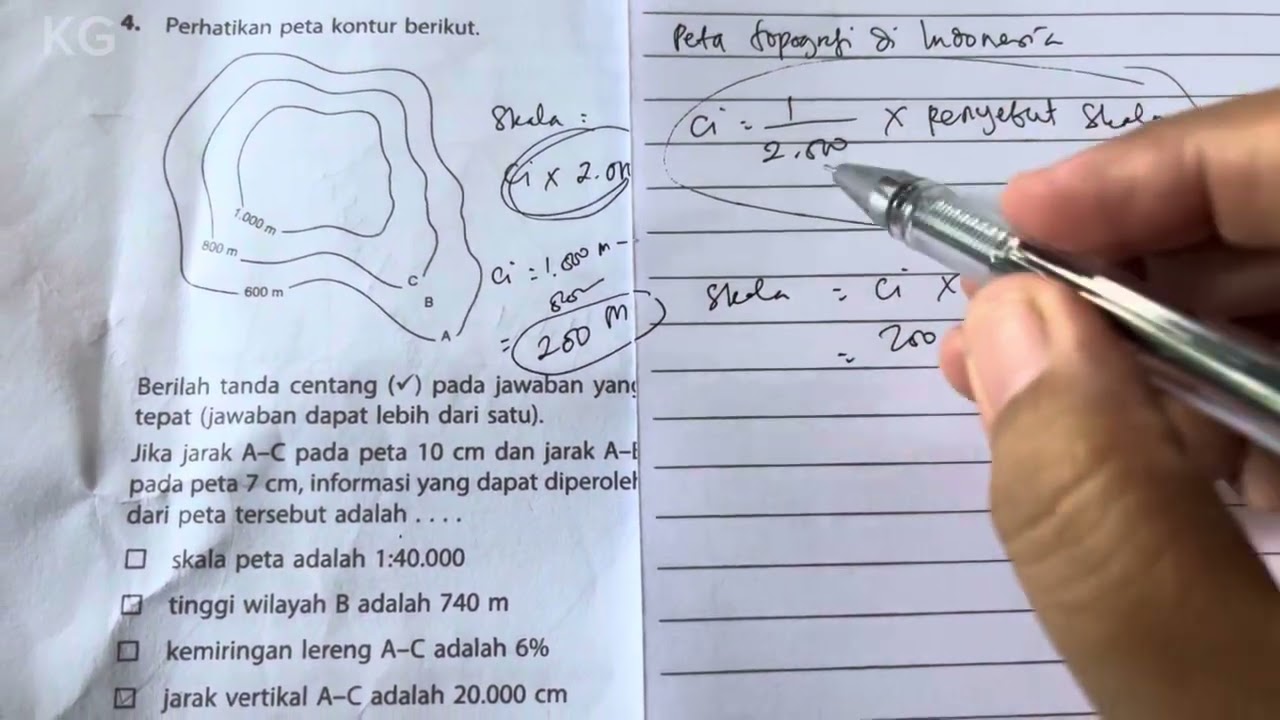 KG
4. Perhatikan peta kontur berikut.
1.000 m
800 m
600 m
C
B
A
Skala :
Ci × 2.00
Ci = 1.000 m –
800
= 200 m
Berilah tanda centang (✓) pada jawaban yang
tepat (jawaban dapat lebih dari satu).
Jika jarak A–C pada peta 10 cm dan jarak A–B
pada peta 7 cm, informasi yang dapat diperoleh
dari peta tersebut adalah . . . .
☐ skala peta adalah 1:40.000
☑ tinggi wilayah B adalah 740 m
☐ kemiringan lereng A–C adalah 6%
☑ jarak vertikal A–C adalah 20.000 cm
Peta topografi di Indonesia
Ci = 1
2.000 × penyebut Skala
Skala = Ci ×
= 200